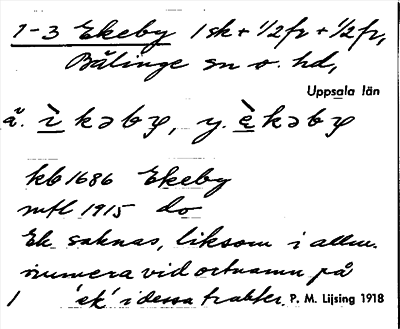 1-3 Ekeby 1 sk + 1/2 fr + 1/2 fr,
Bälinge sn o. hd,
Uppsala län
ä. ì kəby, y. è kəby
kb 1686 Ekeby
mtl 1915 do
Ek saknas, liksom i allm.
numera vid ortnamn på
1 'ek' i dessa trakter. P. M. Lijsing 1918